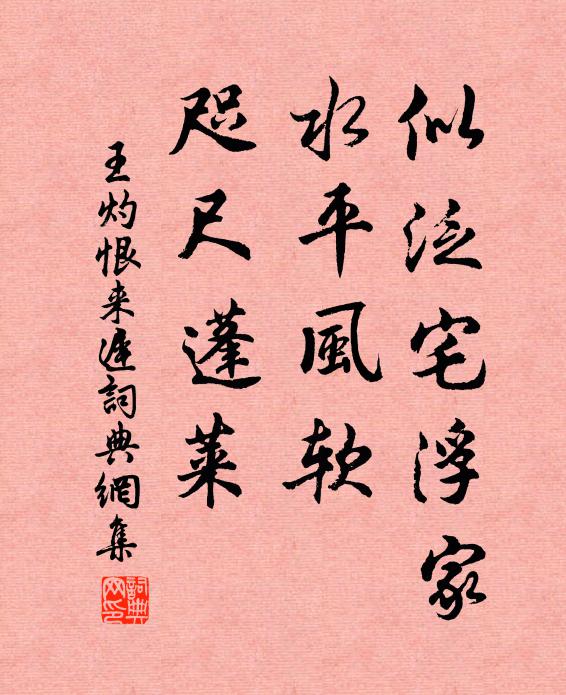 似泛宅浮家
水平風软
咫尺蓬莱
王灼恨来遲詞典網集
詞典網印